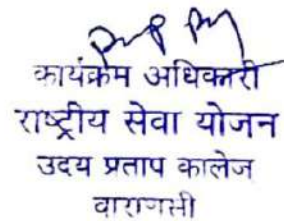 कार्यक्रम अधिकारी
राष्ट्रीय सेवा योजन
उदय प्रताप कालेज
वाराणसी